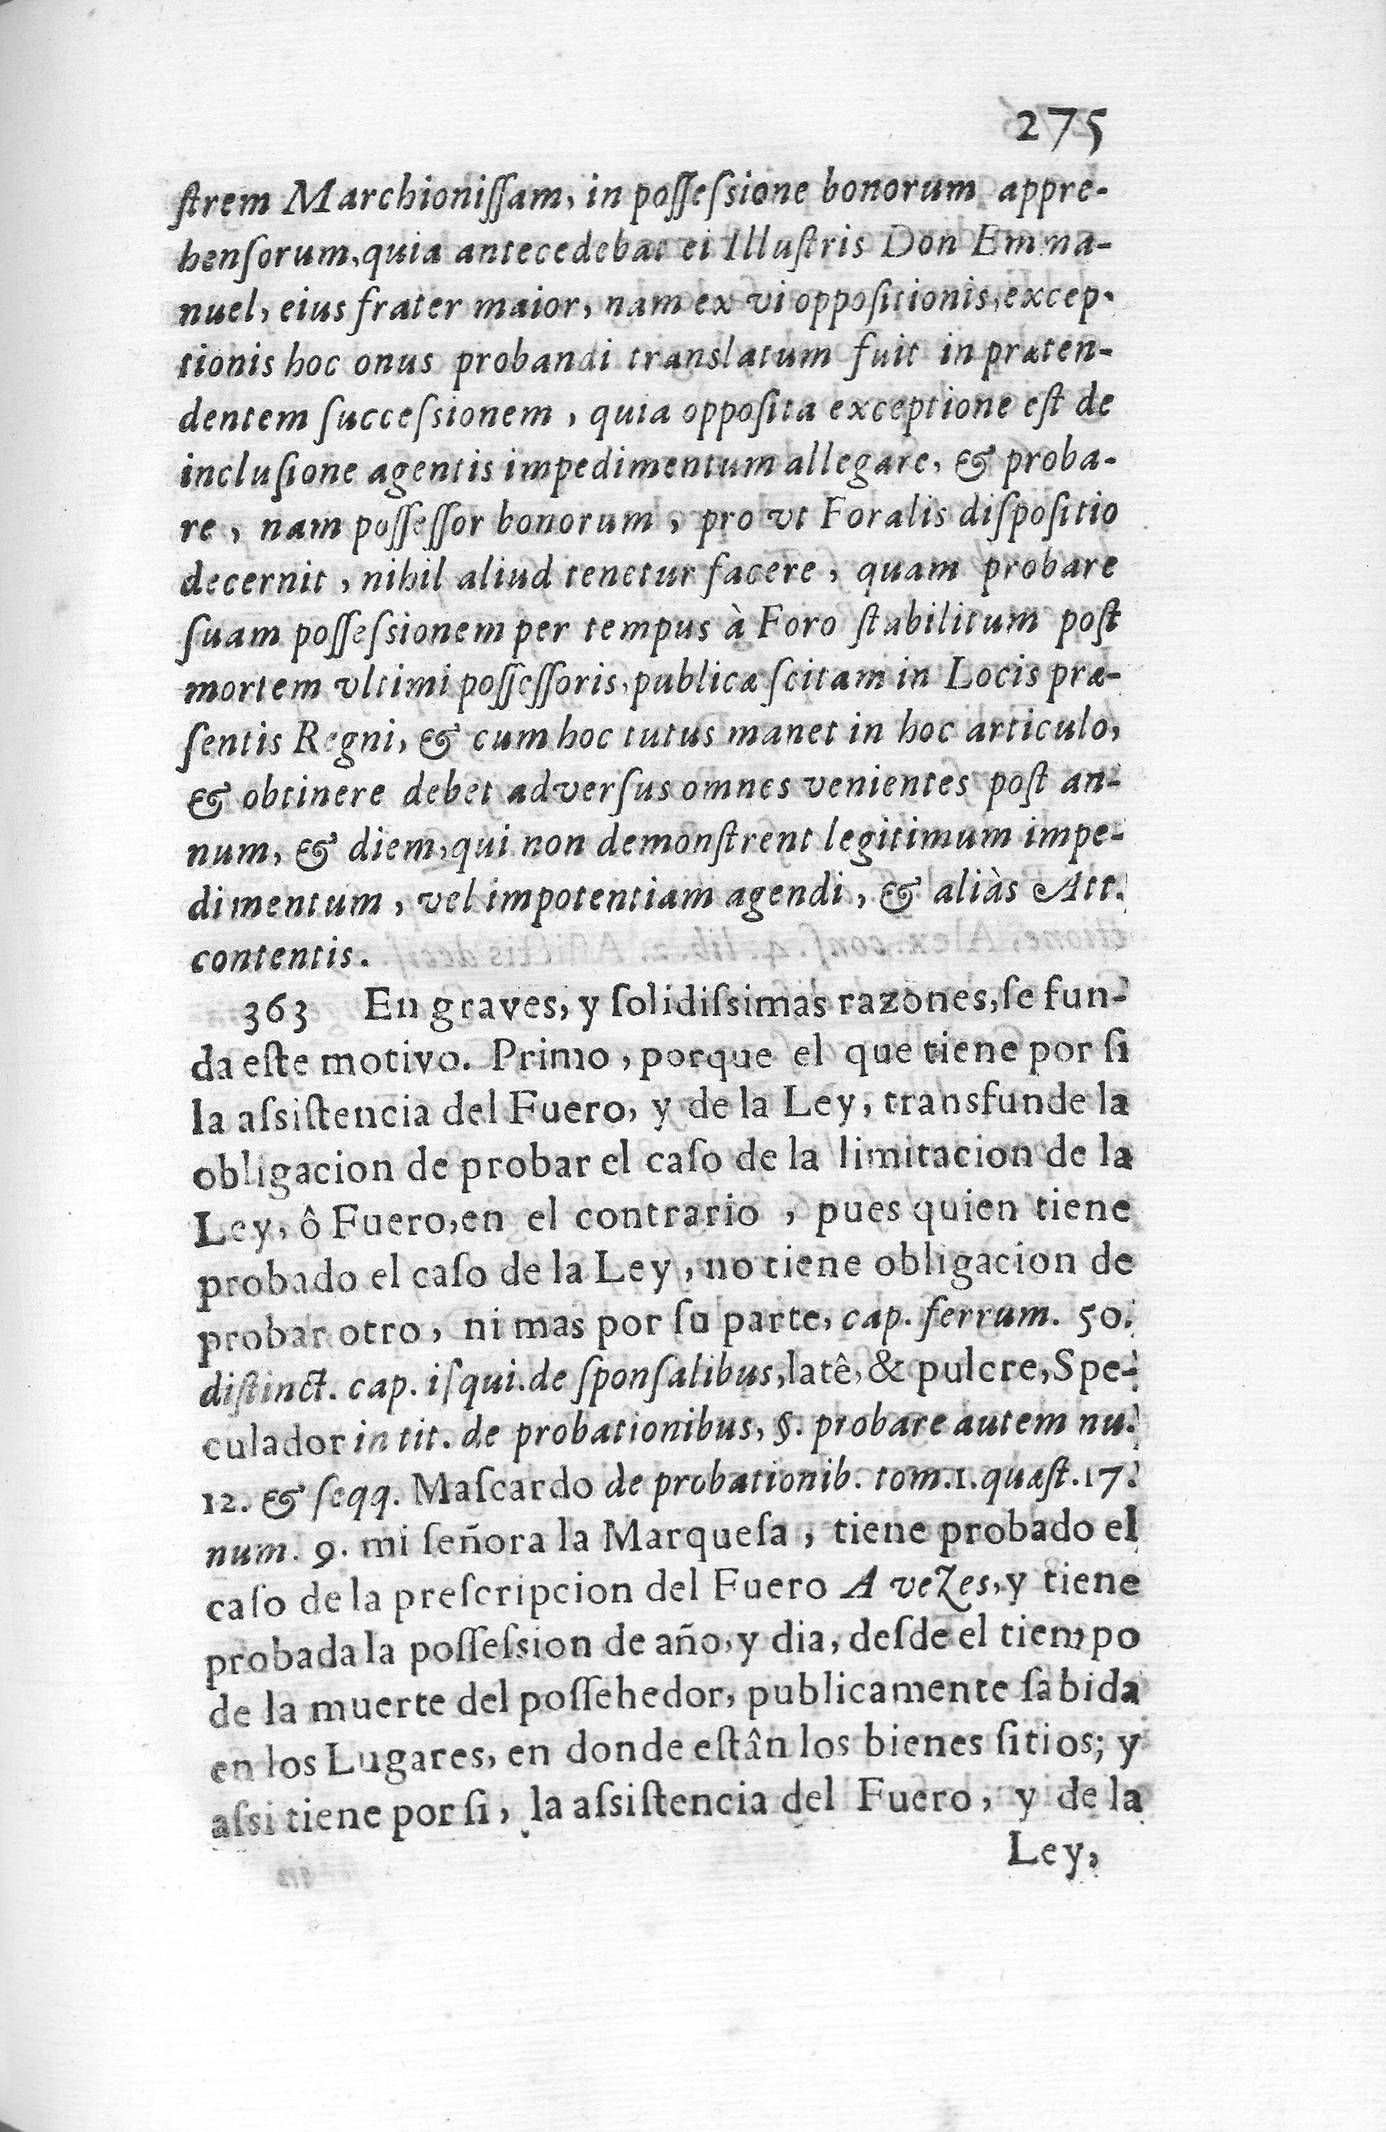 275
ſtrem Marchioniſſam, in poſſeſsione bonorum appre-
henſorum, quia antecedebat ei Illuſtris Don Emma-
nuel, eius frater maior, nam ex vi oppoſitionis, excep-
tionis hoc onus probandi translatum fuit in præten-
dentem ſucceſsionem, quia oppoſita exceptione eſt de
incluſione agentis impedimentum allegare, & proba-
re, nam poſſeſſor bonorum, pro vt Foralis diſpoſitio
decernit, nihil aliud tenetur facere, quam probare
ſuam poſſeſsionem per tempus à Foro ſtabilitum poſt
mortem vltimi poſſeſſoris, publicæ ſcitam in Locis præ-
ſentis Regni, & cum hoc tutus manet in hoc articulo,
& obtinere debet adverſus omnes venientes poſt an-
num, & diem, qui non demonſtrent legitimum impe-
dimentum, vel impotentiam agendi, & aliàs Att.
contentis.
363 En graves, y ſolidiſsimas razones, ſe fun-
da eſte motivo. Primo, porque el que tiene por ſi
la aſsiſtencia del Fuero, y de la Ley, transfunde la
obligacion de probar el caſo de la limitacion de la
Ley, ô Fuero, en el contrario, pues quien tiene
probado el caſo de la Ley, no tiene obligacion de
probar otro, ni mas por ſu parte, cap. ferrum. 50.
diſtinct. cap. iſqui. de ſponſalibus, latê, & pulcre, Spe-
culador in tit. de probationibus, §. probare autem nu.
12. & ſeqq. Maſcardo de probationib. tom.1. quæſt.17.
num. 9. mi ſeñora la Marqueſa, tiene probado el
caſo de la preſcripcion del Fuero A vezes, y tiene
probada la poſſeſsion de año, y dia, deſde el tiempo
de la muerte del poſſehedor, publicamente ſabida
en los Lugares, en donde eſtân los bienes ſitios; y
aſsi tiene por ſi, la aſsiſtencia del Fuero, y de la
Ley,